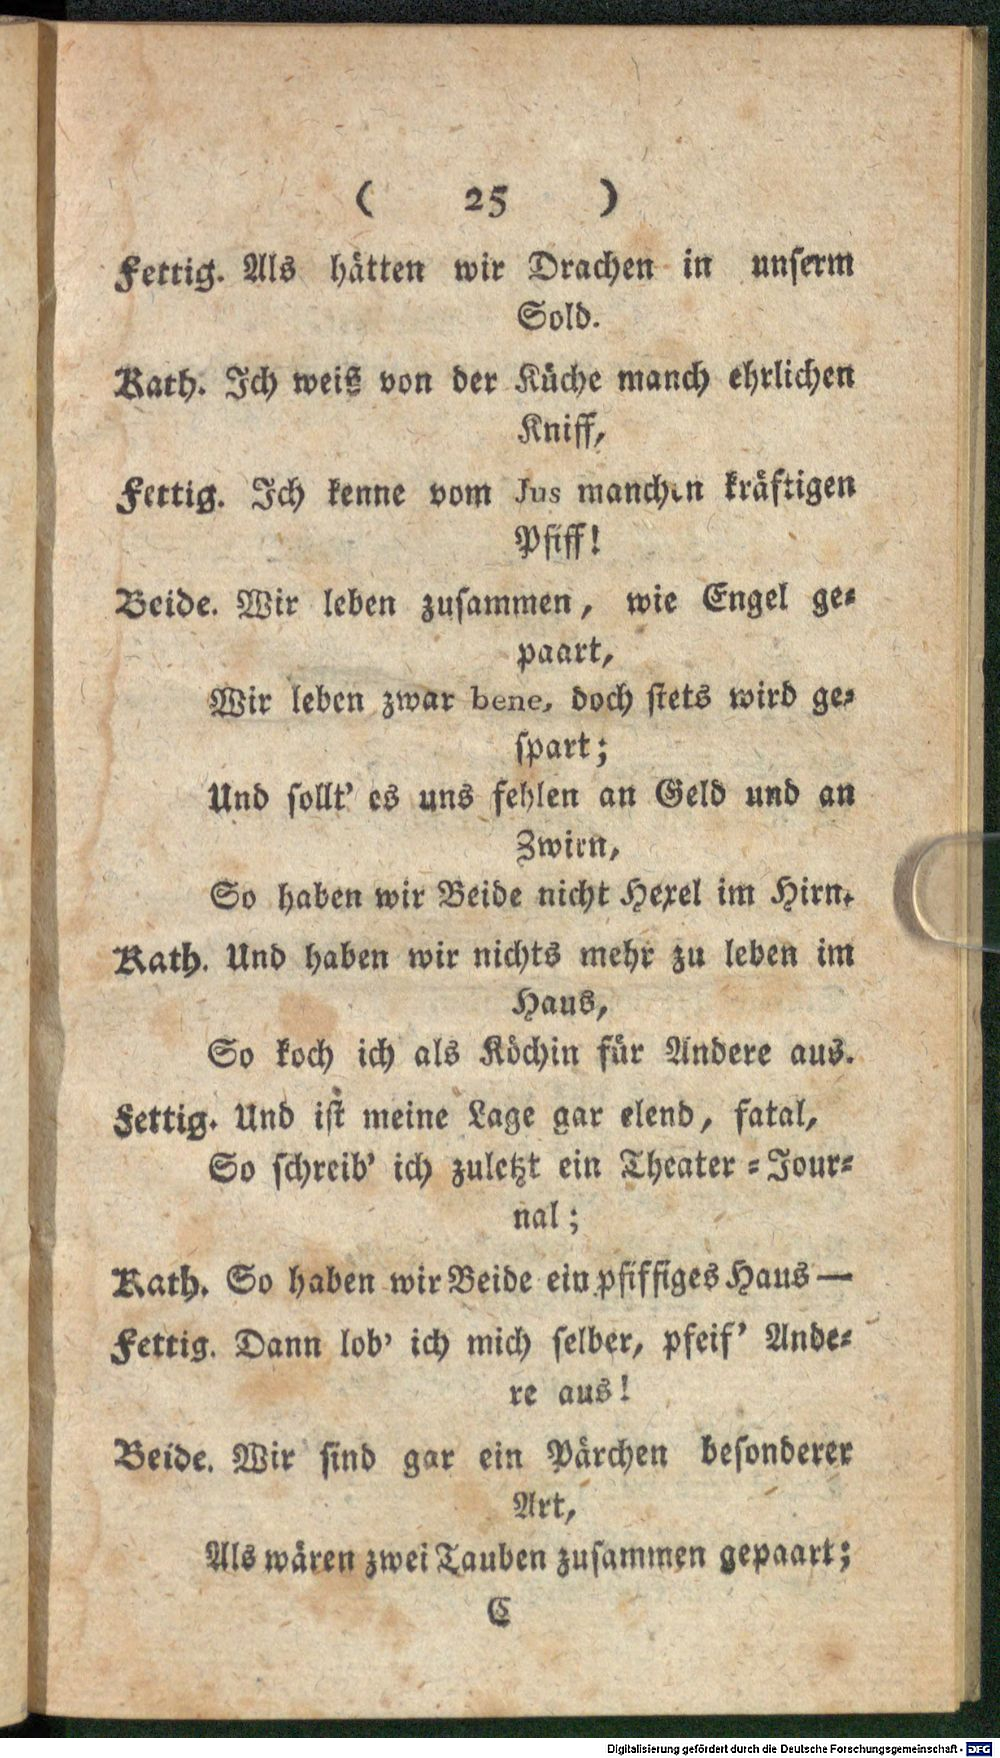 ( 25 )
Fettig. Als hätten wir Drachen in unserm
Sold.
Kath. Ich weiß von der Küche manch ehrlichen
Kniff,
Fettig. Ich kenne vom Jus manchen kräftigen
Pfiff!
Beide. Wir leben zusammen, wie Engel ge-
paart,
Wir leben zwar bene, doch stets wird ge-
spart;
Und sollt' es uns fehlen an Geld und an
Zwirn,
So haben wir Beide nicht Hexel im Hirn.
Kath. Und haben wir nichts mehr zu leben im
Haus,
So koch ich als Köchin für Andere aus.
Fettig. Und ist meine Lage gar elend, fatal,
So schreib' ich zuletzt ein Theater-Jour-
nal;
Kath. So haben wir Beide ein pfiffiges Haus —
Fettig. Dann lob' ich mich selber, pfeif' Ande-
re aus!
Beide. Wir sind gar ein Pärchen besonderer
Art,
Als wären zwei Tauben zusammen gepaart;
C
Digitalisierung gefördert durch die Deutsche Forschungsgemeinschaft - DFG